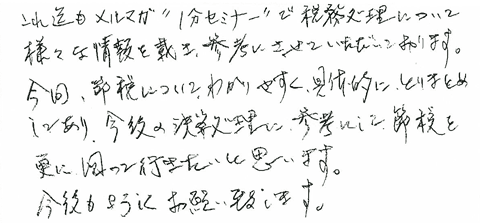 これ迄もメルマガ"1分セミナー"で税務処理について
様々な情報を戴き、参考にさせていただいております。
今回、節税についてわかりやすく、具体的に、とりまとめ
してあり、今後の決算処理に、参考にして、節税を
更に、図って行きたいと思います。
今後もよろしくお願い致します。